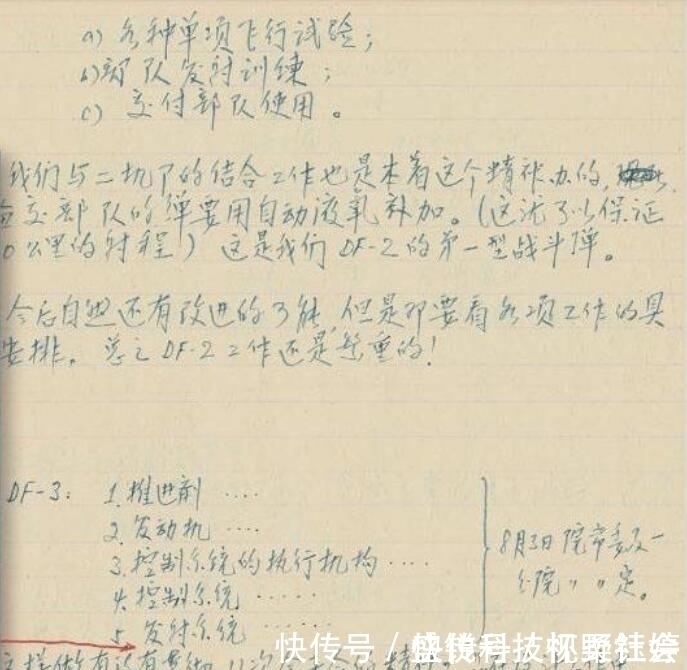 a) 各种单项飞行试验；
b) 部队发射训练；
c) 交付部队使用。
我们与二机部的结合工作也是本着这个精神办的，
交部队的弹要用自动液氧补加。（这就可以保证
0公里的射程）这是我们DF-2的第一型战斗弹。
今后自然还有改进的可能，但是那要看各项工作的具
安排。总之DF-2工作还是繁重的！
DF-3： 1. 推进剂 ....
2. 发动机 ....
3. 控制系统的执行机构 ....
4. 控制系统 ......
5. 发射系统 ......
8月3日院常委及一
分院〃〃定。
快传号 /